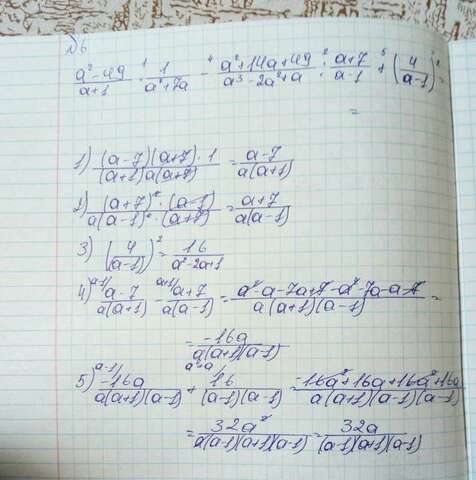 №6
(a²-49)/(a+1) · 1/(a²+7a) - (a²+14a+49)/(a³-2a²+a) : (a+7)/(a-1) + (4/(a-1))² =
=
1) ((a-7)(a+7)·1)/((a+1)a(a+7)) = (a-7)/(a(a+1))
2) ((a+7)²·(a-1))/(a(a-1)²·(a+7)) = (a+7)/(a(a-1))
3) (4/(a-1))² = 16/(a²-2a+1)
4) a-1/ (a-7)/(a(a+1)) - a+1/ (a+7)/(a(a-1)) = (a²-a-7a+7-a²-7a-a-7)/(a(a+1)(a-1)) =
= (-16a)/(a(a+1)(a-1))
5) a-1/ (-16a)/(a(a+1)(a-1)) + a²+a/ 16/((a-1)(a-1)) = (-16a²+16a+16a²+16a)/(a(a+1)(a-1)(a-1))
= (32a²)/(a(a-1)(a+1)(a-1)) = (32a)/((a-1)(a+1)(a-1))